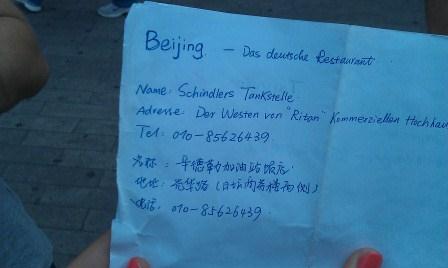 Beijing. - Das deutsche Restaurant
Name: Schindlers Tankstelle
Adresse: Der Westen von "Ritan" Kommerziellen Hochhau
Tel: 010-85626439.
名称: 辛德勒加油站饭店.
地址: 光华路(日坛商务楼西侧)
电话: 010-85626439.